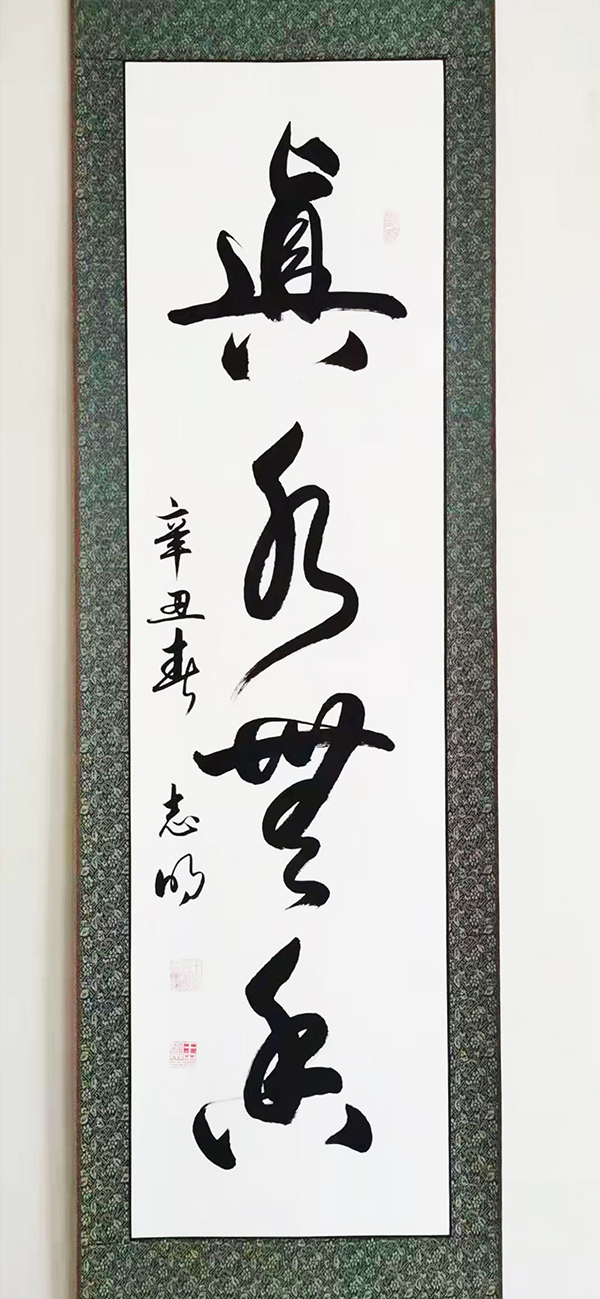 眞水無香
辛丑春 志明